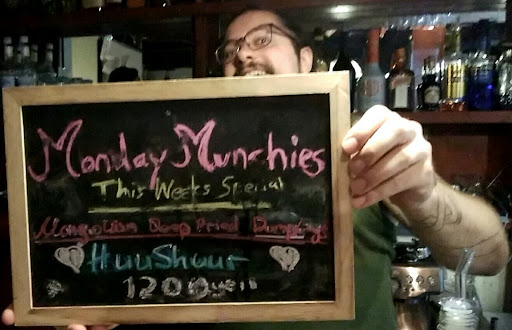 Monday Munchies
This Weeks Special
Mongolian Deep Fried Dumplings
Huushuur
1200yen